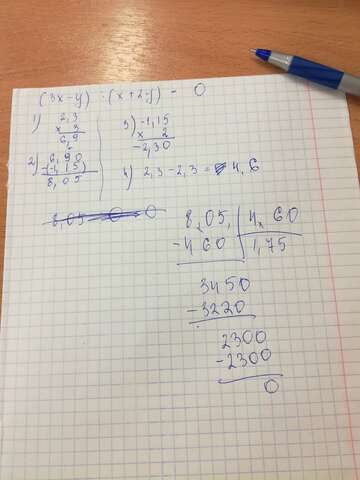 (3x-y) : (x+2-y) - 0
1) 2,3
x 3
6,9
2) 6,90
-(-1,15)
8,05
3) -1,15
x 2
-2,30
4) 2,3 - 2,3 = 4,6
8,05 0 0
8,05, 4, 60
-460 1,75
3450
-3220
2300
-2300
0